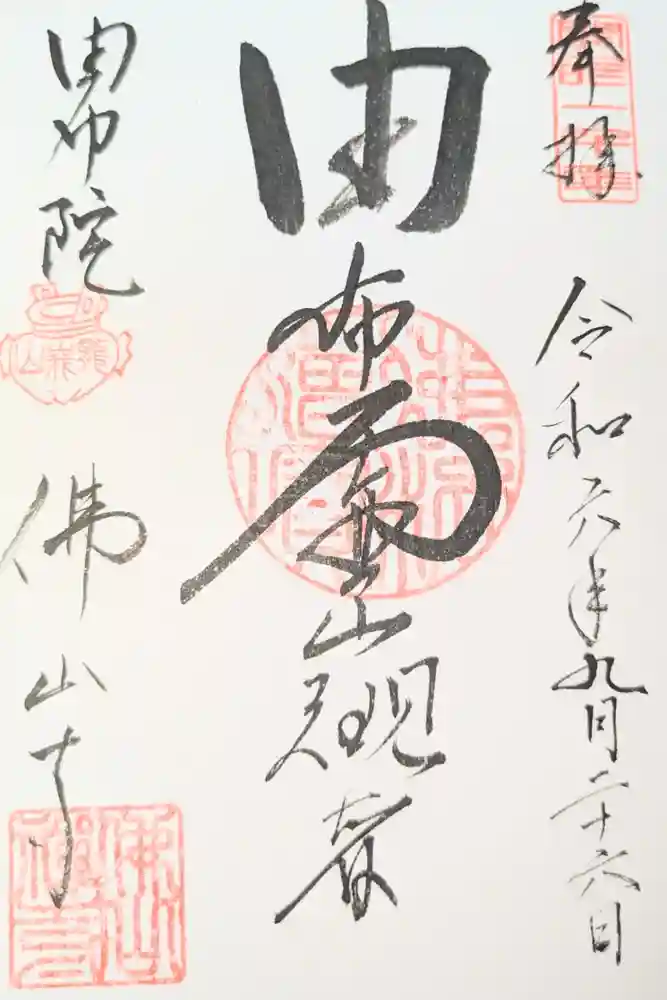 奉拝
令和六年九月二十六日
由布霊山観音
由布院
佛山寺